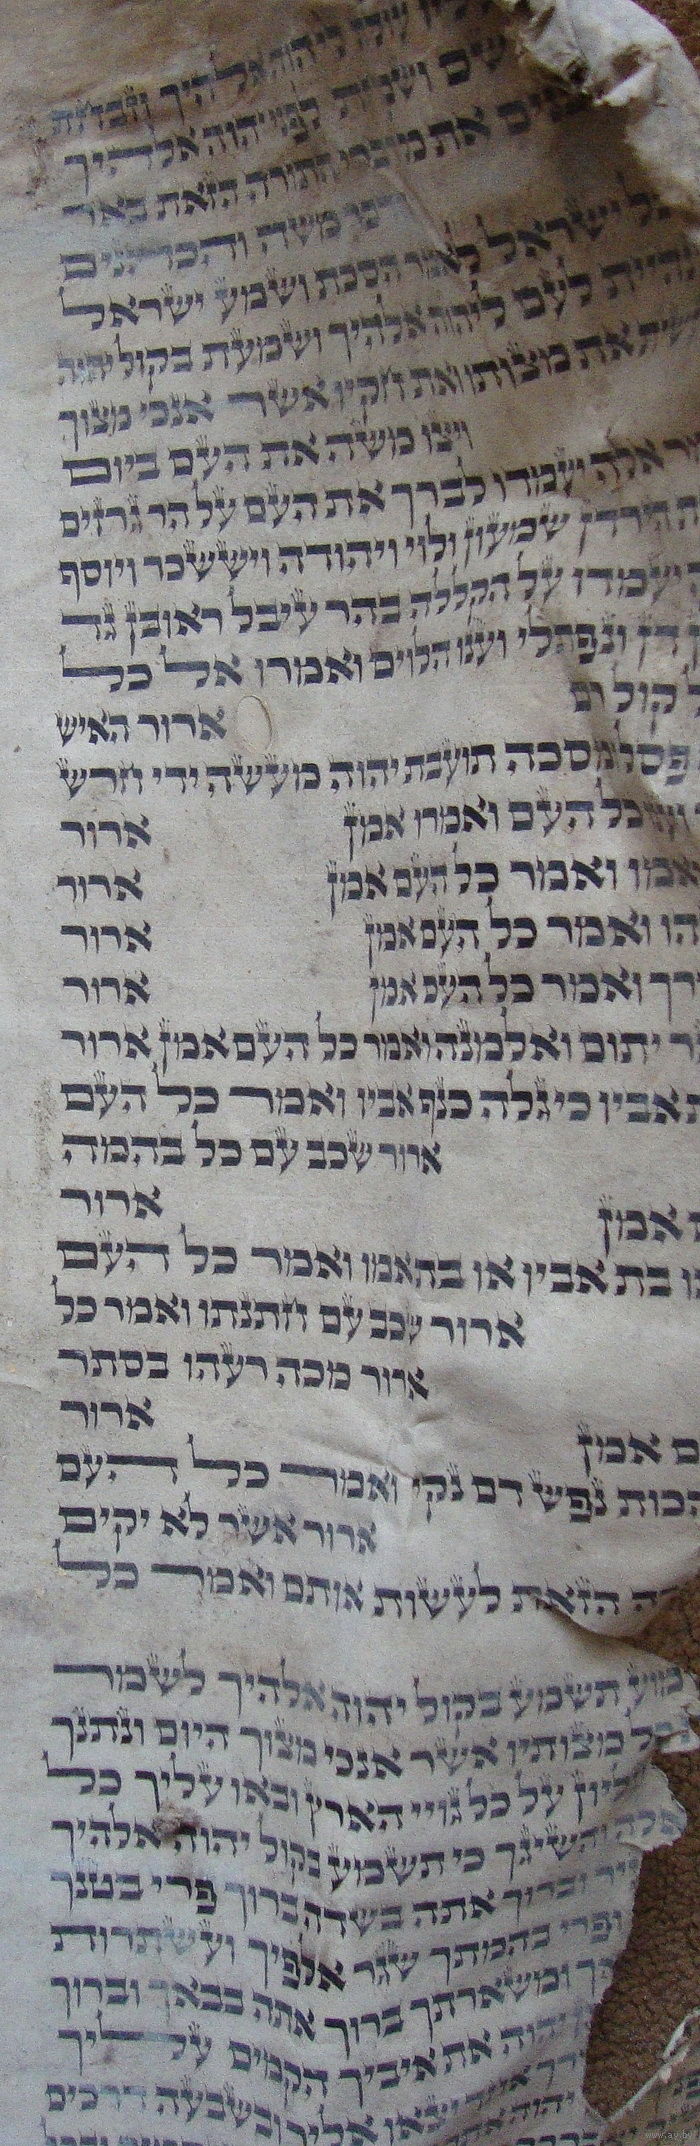 עליו עולת ליהוה אלהיך וזבחת
שם ושמחת לפני יהוה אלהיך
את כל דברי התורה הזאת באר
וידבר משה והכהנים
כל ישראל לאמר הסכת ושמע ישראל
נהיית לעם ליהוה אלהיך ושמעת בקול יהוה
את מצותו ואת חקיו אשר אנכי מצוך
ויצו משה את העם ביום
אלה יעמדו לברך את העם על הר גרזים
הירדן שמעון ולוי ויהודה ויששכר ויוסף
יעמדו על הקללה בהר עיבל ראובן גד
דן ונפתלי וענו הלוים ואמרו אל כל
קול רם
ארור האיש
פסל ומסכה תועבת יהוה מעשה ידי חרש
וענו כל העם ואמרו אמן ארור
ואמו ואמר כל העם אמן ארור
ואמר כל העם אמן ארור
ואמר כל העם אמן ארור
יתום ואלמנה ואמר כל העם אמן ארור
אביו כי גלה כנף אביו ואמר כל העם
ארור שכב עם כל בהמה
אמן ארור
בת אביו או בת אמו ואמר כל העם
ארור שכב עם חתנתו ואמר כל
ארור מכה רעהו בסתר
אמן ארור
להכות נפש דם נקי ואמר כל העם
ארור אשר לא יקים
הזאת לעשות אותם ואמר כל
תשמע בקול יהוה אלהיך לשמר
כל מצותיו אשר אנכי מצוך היום ונתנך
עליון על כל גויי הארץ ובאו עליך כל
האלה והשיגך כי תשמע בקול יהוה אלהיך
וברוך אתה בשדה ברוך פרי בטנך
ופרי בהמתך שגר אלפיך ועשתרות
ומשארתך ברוך אתה בבאך וברוך
יהוה את איביך הקמים עליך
יצאו אליך ובשבעה דרכים